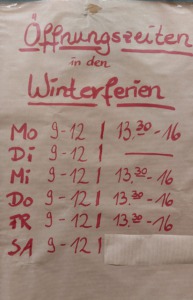 Öffnungszeiten
in den
Winterferien
Mo 9-12 | 13.30-16
Di 9-12 | ——
Mi 9-12 | 13.30-16
Do 9-12 | 13.30-16
FR 9-12 | 13.30-16
SA 9-12 |